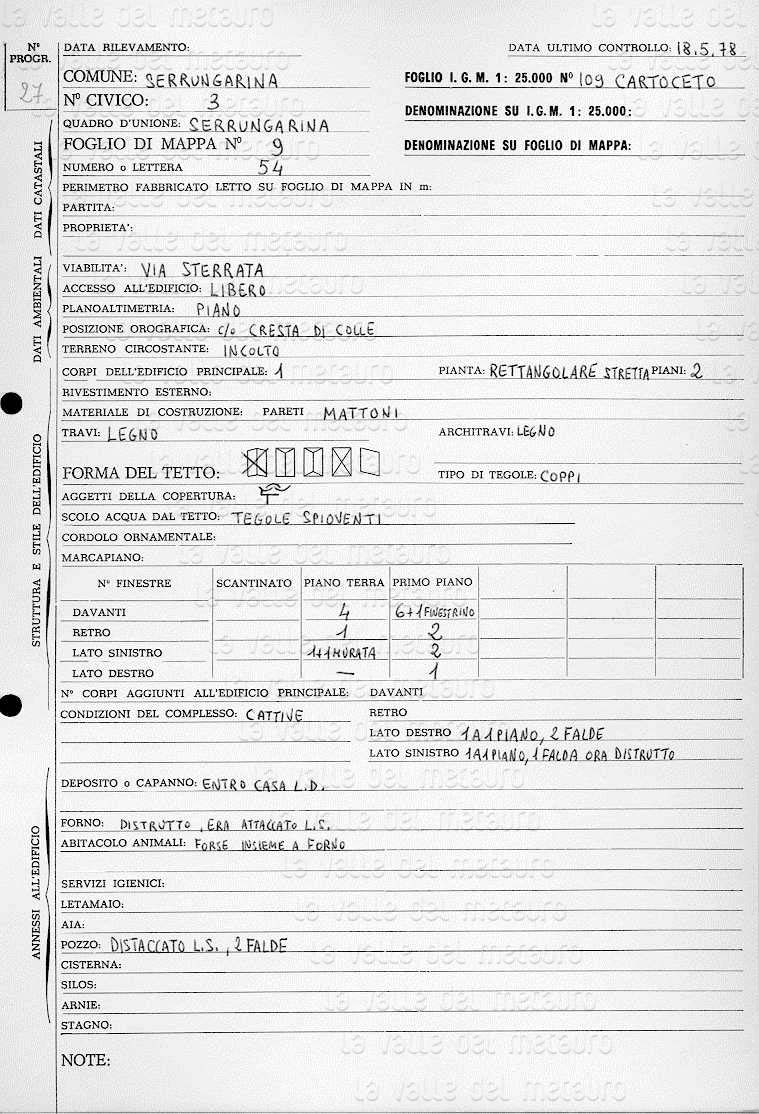 la valle del metauro
N° PROGR. 27
DATA RILEVAMENTO: DATA ULTIMO CONTROLLO: 18.5.78
COMUNE: SERRUNGARINA FOGLIO I. G. M. 1: 25.000 N° 109 CARTOCETO
N° CIVICO: 3 DENOMINAZIONE SU I. G. M. 1: 25.000:
QUADRO D'UNIONE: SERRUNGARINA
FOGLIO DI MAPPA N° 9 DENOMINAZIONE SU FOGLIO DI MAPPA:
NUMERO o LETTERA 54
PERIMETRO FABBRICATO LETTO SU FOGLIO DI MAPPA IN m:
PARTITA:
PROPRIETA':
DATI CATASTALI
VIABILITA': VIA STERRATA
ACCESSO ALL'EDIFICIO: LIBERO
PLANOALTIMETRIA: PIANO
POSIZIONE OROGRAFICA: c/o CRESTA DI COLLE
TERRENO CIRCOSTANTE: INCOLTO
DATI AMBIENTALI
CORPI DELL'EDIFICIO PRINCIPALE: 1 PIANTA: RETTANGOLARE STRETTA PIANI: 2
RIVESTIMENTO ESTERNO:
MATERIALE DI COSTRUZIONE: PARETI MATTONI
TRAVI: LEGNO ARCHITRAVI: LEGNO
FORMA DEL TETTO: TIPO DI TEGOLE: COPPI
AGGETTI DELLA COPERTURA:
SCOLO ACQUA DAL TETTO: TEGOLE SPIOVENTI
CORDOLO ORNAMENTALE:
MARCAPIANO:
N° FINESTRE SCANTINATO PIANO TERRA PRIMO PIANO
DAVANTI 4 6+1 FINESTRINO
RETRO 1 2
LATO SINISTRO 1+1 MURATA 2
LATO DESTRO — 1
STRUTTURA E STILE DELL'EDIFICIO
N° CORPI AGGIUNTI ALL'EDIFICIO PRINCIPALE: DAVANTI
CONDIZIONI DEL COMPLESSO: CATTIVE RETRO
LATO DESTRO 1 A 1 PIANO, 2 FALDE
LATO SINISTRO 1 A 1 PIANO, 1 FALDA ORA DISTRUTTO
DEPOSITO o CAPANNO: ENTRO CASA L.D.
FORNO: DISTRUTTO, ERA ATTACCATO L.S.
ABITACOLO ANIMALI: FORSE INSIEME A FORNO
SERVIZI IGIENICI:
LETAMAIO:
AIA:
POZZO: DISTACCATO L.S., 2 FALDE
CISTERNA:
SILOS:
ARNIE:
STAGNO:
ANNESSI ALL'EDIFICIO
NOTE: